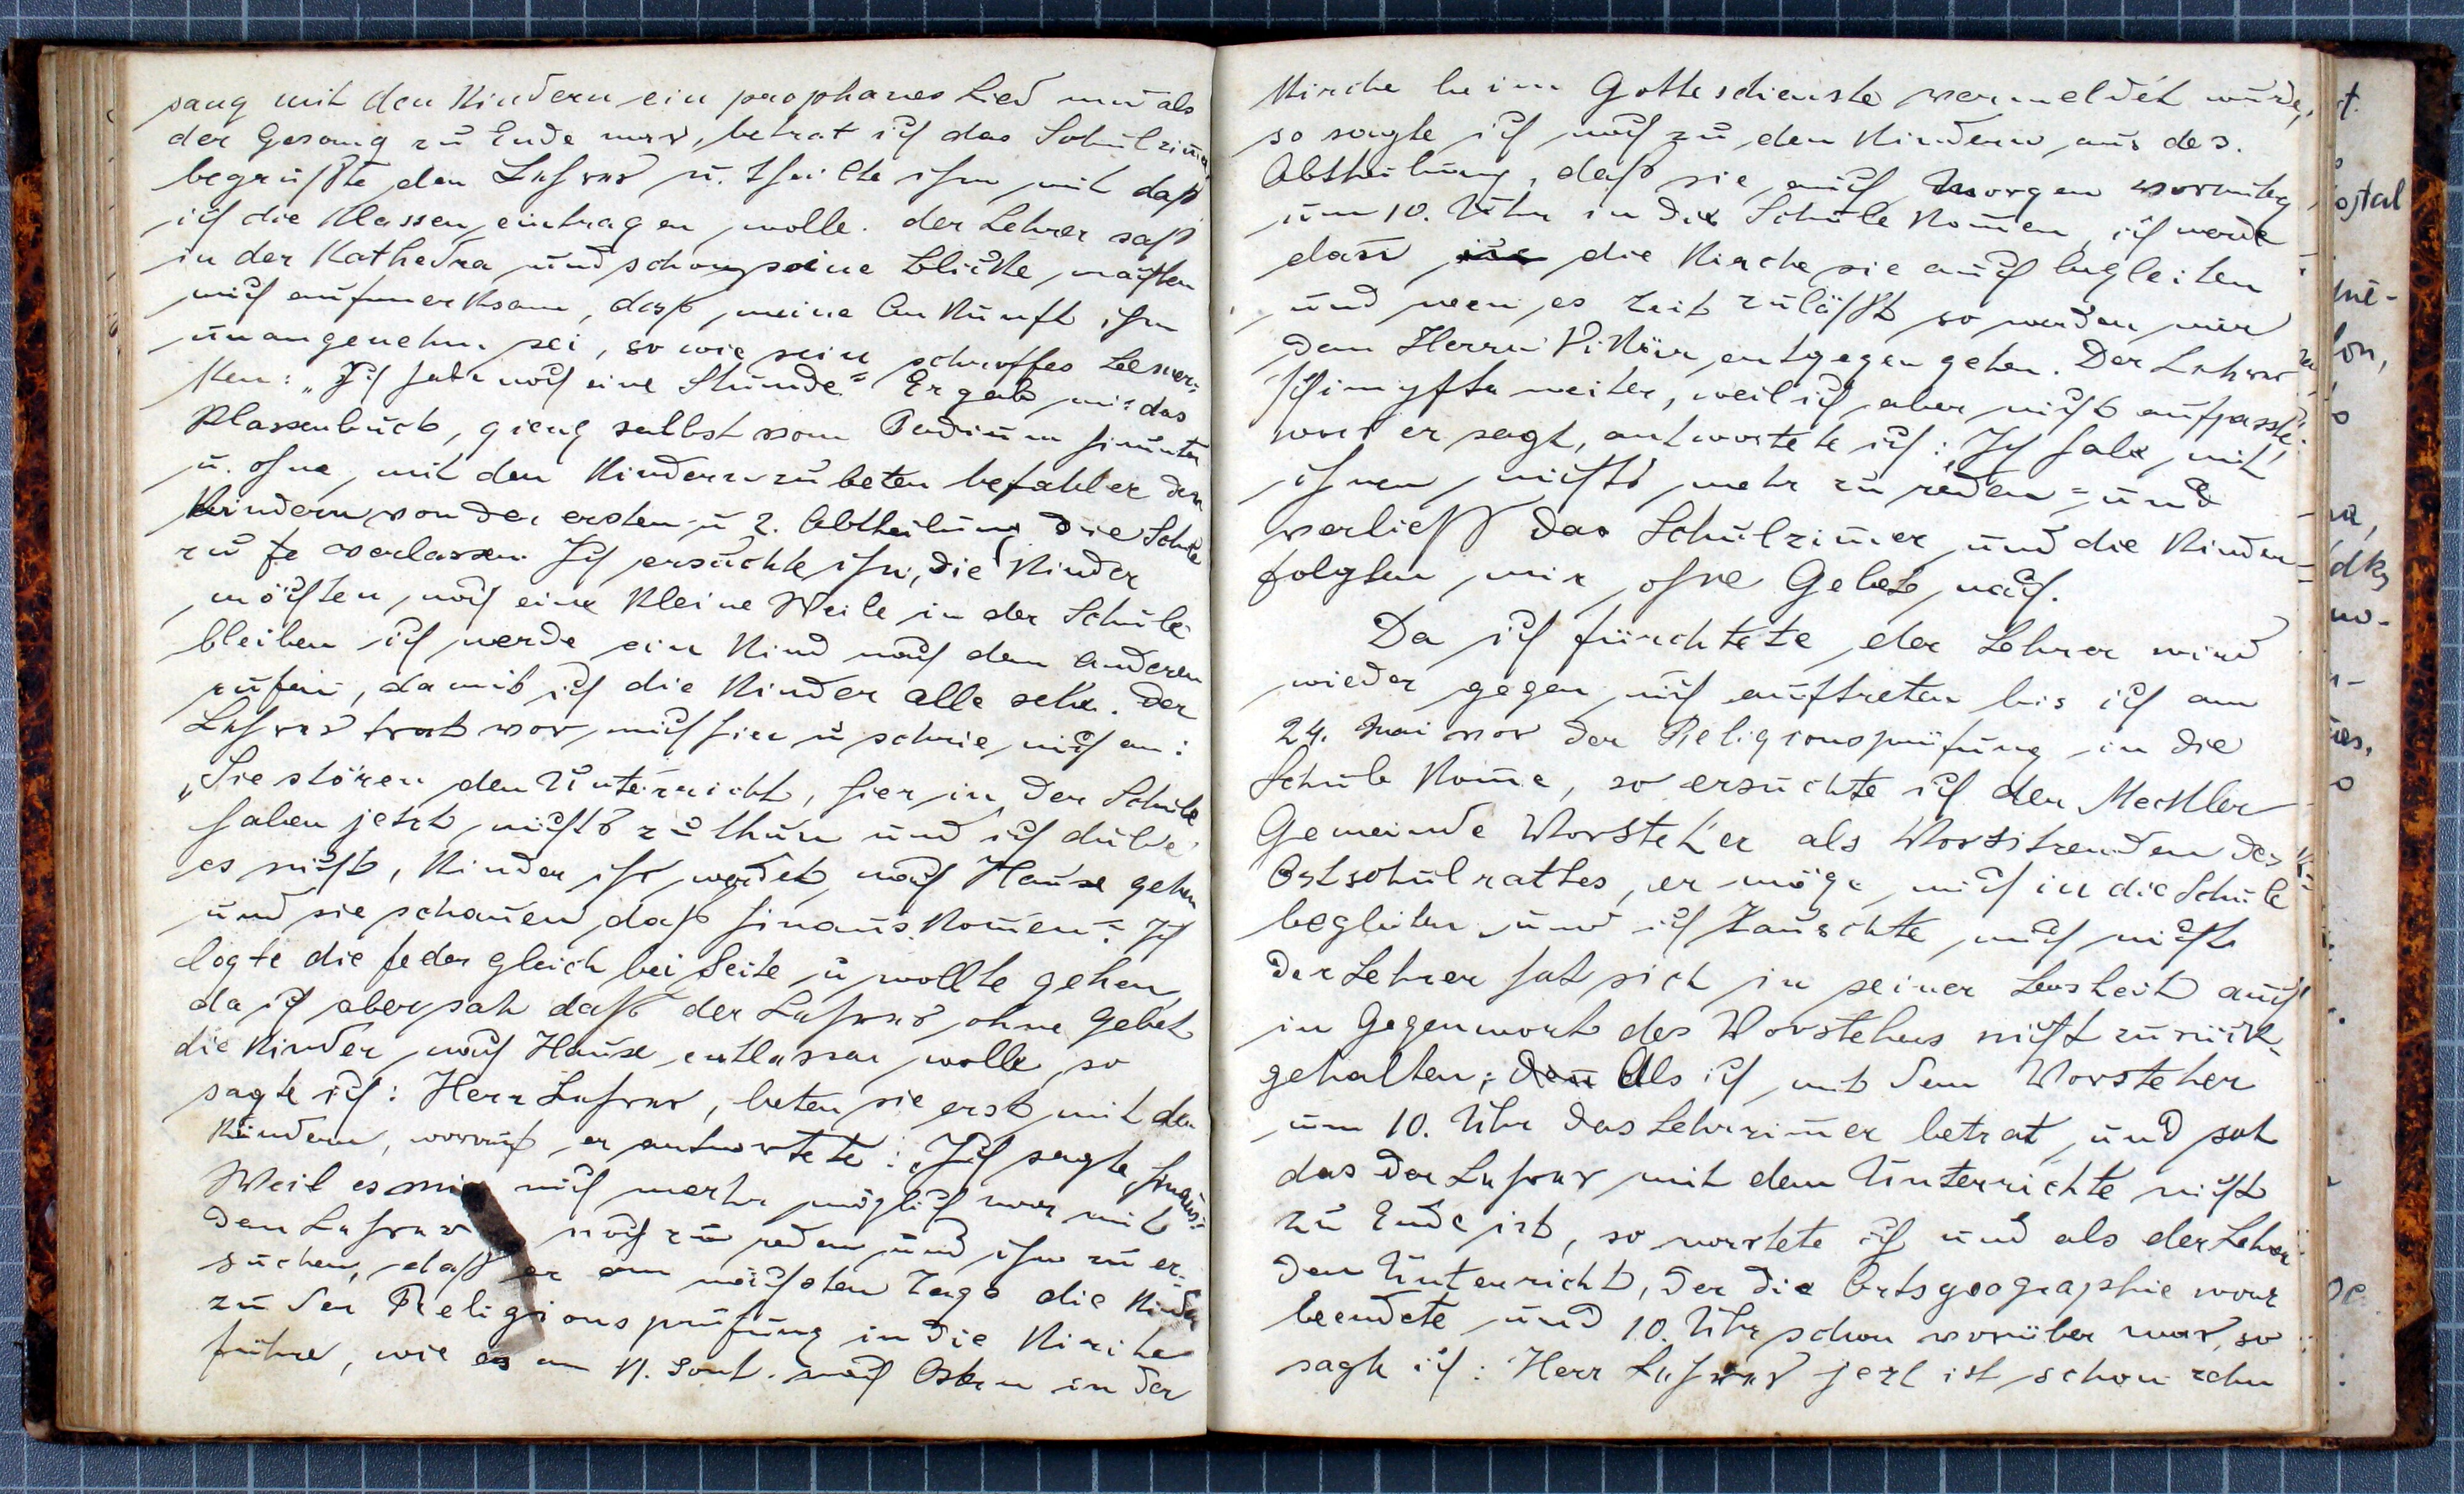 sang mit den Kindern ein prophanes Lied und als
der Gesang zu Ende war, betrat ich das Schulzim̄er,
begrüßte den Lehrer u. theilte ihm mit daß
ich die Klassen eintragen wolle. der Lehrer saß
in der Kathedra und schon seine Blicke machten
mich aufmerksam, daß meine Ankunft ihm
unangenehm sei, so wie sein schroffes Bemer-
ken: „Ich habe noch eine Stunde" Er gab mir das
Klassenbuch, gieng selbst vom Podium hinunter
u. ohne mit den Kindern zu beten befahl er den
Kindern von der ersten u 2. Abtheilung die Schule
zu verlassen. Ich ersuchte ihn, die Kinder
möchten noch eine kleine Weile in der Schule
bleiben ich werde ein Kind nach dem anderen
rufen, damit ich die Kinder alle sehe. Der
Lehrer trat vor mich hin u schrie mich an:
„Sie stören den Unterricht, hier in der Schule
haben jetzt nichts zu thun und ich dulde
es nicht, Kinder ihr werdet nach Hause gehen
und sie schauen daß hinaus kom̄en". Ich
legte die Feder gleich bei Seite u wollte gehen,
da ich aber sah daß der Lehrer ohne Gebet
die Kinder nach Hause entlassen wolle, so
sagte ich: Herr Lehrer, beten sie erst mit den
Kindern, worauf er antwortete: „Ich sagte hinaus!
Weil es mir nich mehr möglich war mit
dem Lehrer noch zu reden und ihn zu er-
suchen, daß er am nächsten Tage die Kinder
zu der Religionsprüfung in die Kirche
führe, wie es am N. Sont. nach Ostern in der
Kirche beim Gottesdienste vermeldet wurde,
so sagte ich noch zu den Kindern aus der 3.
Abtheilung, daß sie auch Morgen vormittag
um 10. Uhr in die Schule kom̄en, ich werde
dan̄ in die Kirche sie auch begleiten
und wen̄ es Zeit zuläßt so werden wir
dem Herrn Vikär entgegen gehen. Der Lehrer
schimpfte weiter, weil ich aber nicht aufpasste
was er sagt, antwortete ich: „Ich habe mit
ihnen nichts mehr zu reden" und
verließ das Schulzim̄er und die Kinder
folgten mir ohne Gebet nach.
Da ich fürchtete der Lehrer wird
wieder gegen mich auftreten bis ich am
24. Mai vor der Religionsprüfung in die
Schule kom̄e, so ersuchte ich den Meckler
Gemeinde Vorsteher als Vorsitzenden des
Ortsschulrathes, er möge mich in die Schule
begleiten und ich täuschte mich nicht
Der Lehrer hat sich in seiner Bosheit auch
in Gegenwart des Vorstehers nicht zurück-
gehalten; den̄ Als ich mit dem Vorsteher
um 10. Uhr das Lehrzim̄er betrat, und sah
das der Lehrer mit dem Unterrichte nicht
zu Ende ist, so wartete ich und als der Lehrer
den Unterricht, der die Ortsgeographie war
beendete und 10. Uhr schon vorüber war, so
sagte ich: Herr Lehrer jezt ist schon zehn